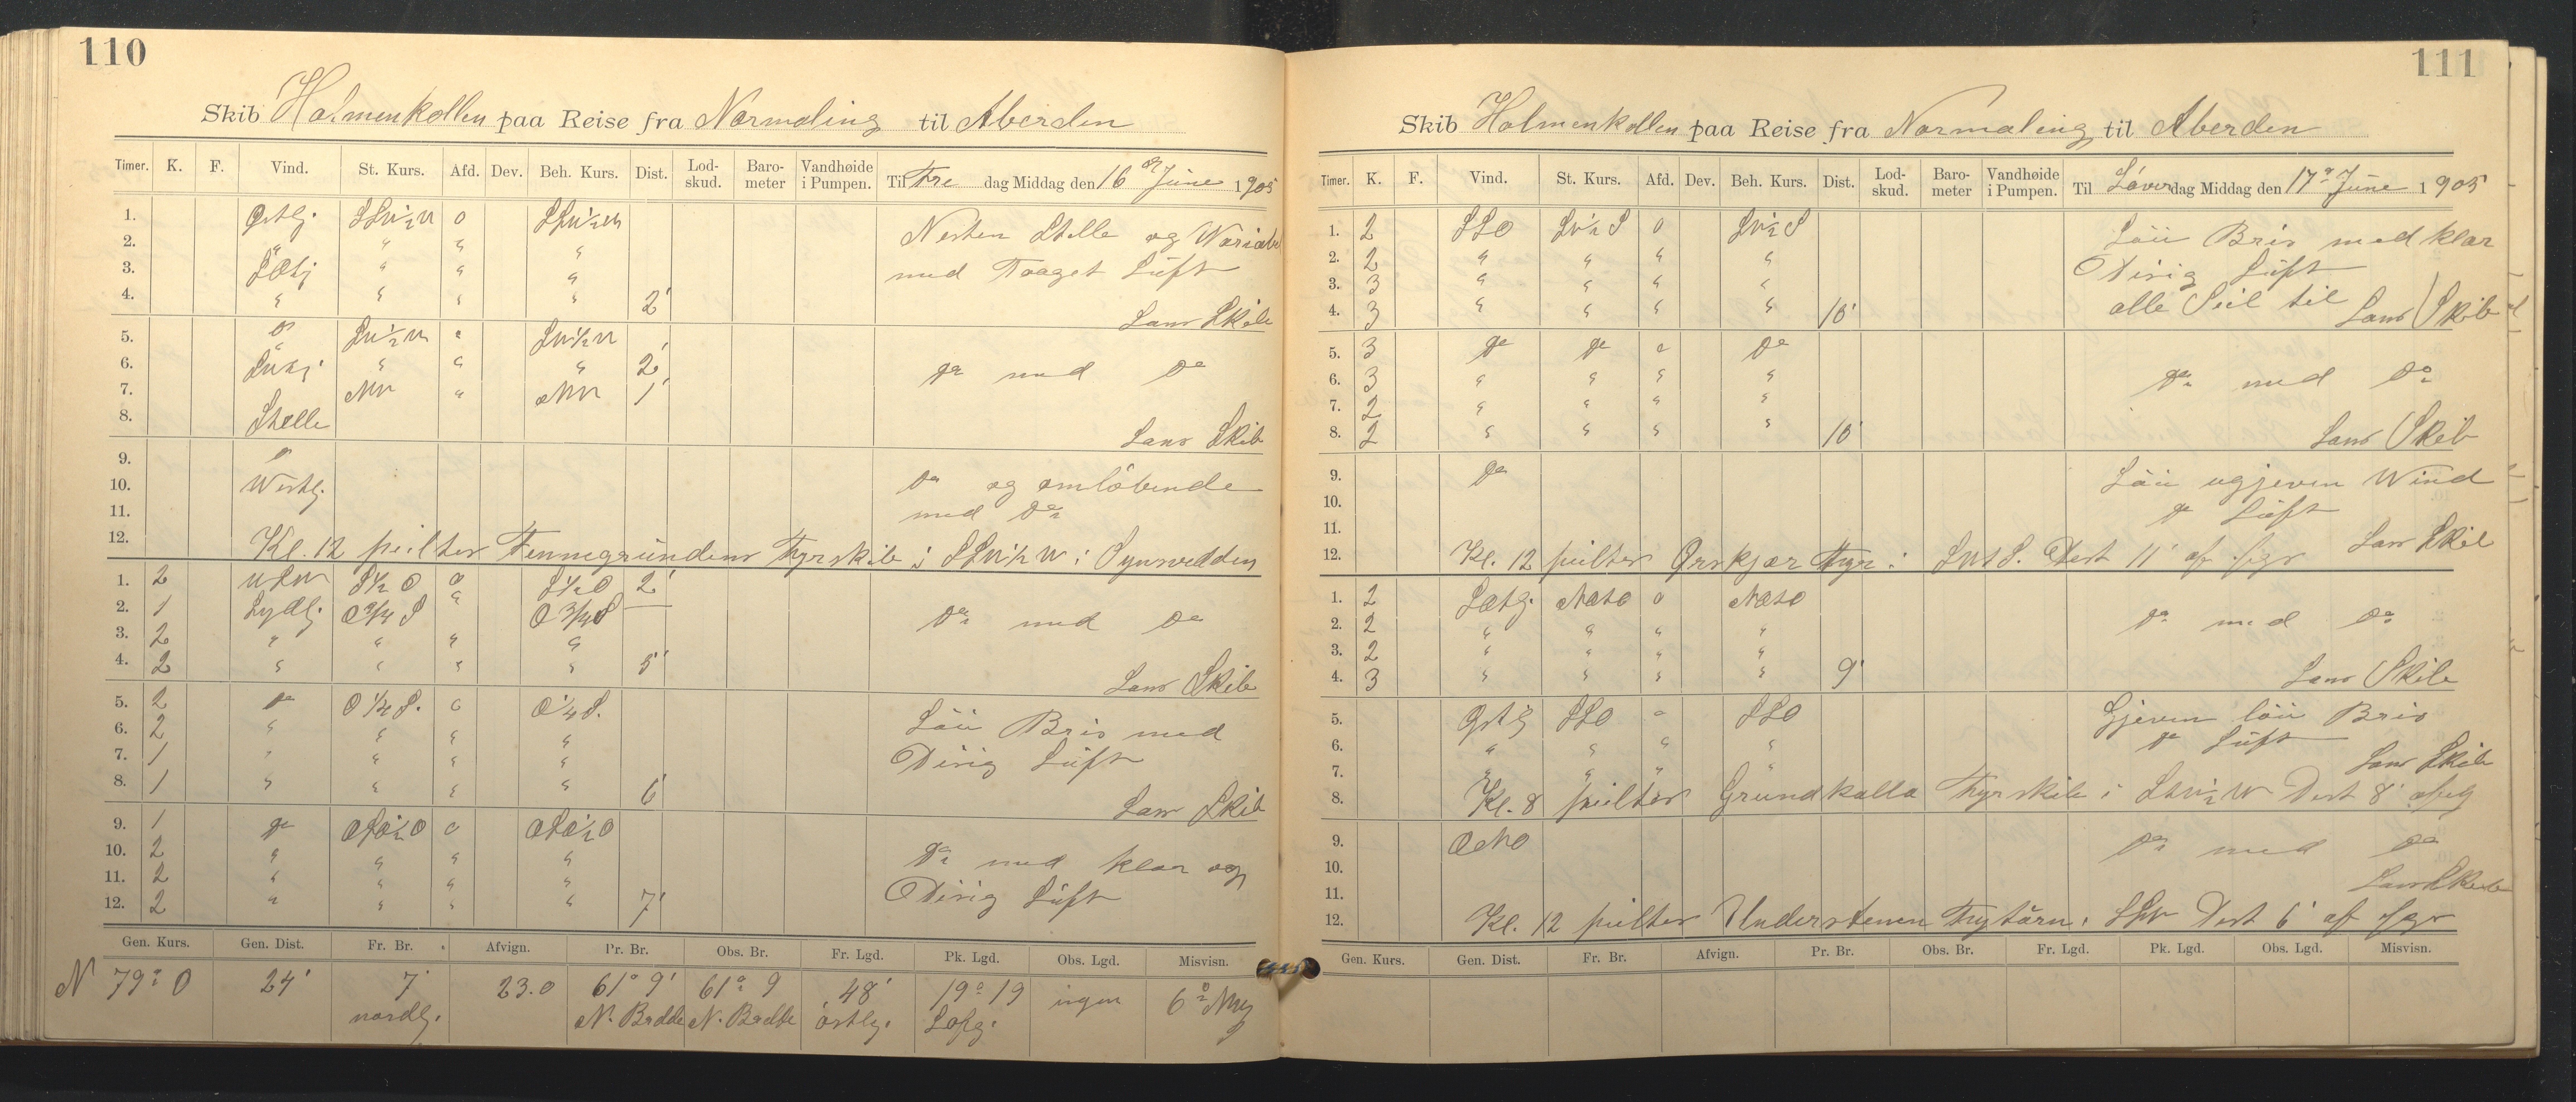 110
Skib Holmenkollen paa Reise fra Normaling til Aberden
Timer. K. F. Vind. St. Kurs. Afd. Dev. Beh. Kurs. Dist. Lod-skud. Baro-meter Vandhøide i Pumpen. Til Fre dag Middag den 16 de June 1905
1. Østlg. SSW½W 0 SSW½W
2. " " " "
Nesten Stille og Wariabel
3. " " "
med Taaget Luft
4. " " " " 2'
Lans Skib
5. Do SW½W " SW½W
6. " " " 2'
Do med Do
7. NW " NW 1'
8. Stille
Lans Skib
9. Do
10. Westlg.
Do og omløbende
11.
med Do
12. Kl. 12 peiltes Fennegrundens Fyrskib i SSW½W i Synsvidden
1. 2 WSW S½O 0 S½O 2'
2. 1 Sydlg. O¾S " O¾S
Do med Do
3. 2 " " " "
4. 2 " " " " 5'
Lans Skib
5. 2 Do O¼S. 0 O¼S.
Løi Bris med
6. 2 " " " "
7. 1 " " " "
Disig Luft
8. 1 " " " " 6'
Lans Skib
9. 1 Do OSO½O 0 OSO½O
10. 2 " " " "
Do med klar og
11. 2 " " " "
Disig Luft
12. 2 " " " " 7'
Gen. Kurs. Gen. Dist. Fr. Br. Afvign. Pr. Br. Obs. Br. Fr. Lgd. Pk. Lgd. Obs. Lgd. Misvisn.
N 79° O 24' 7' 23.0 61° 9' 61° 9 48' 19° 19 ingen 6°
nordlg. N. Bredde N. Bredde østlg.
111
Skib Holmenkollen paa Reise fra Normaling til Aberden
Timer. K. F. Vind. St. Kurs. Afd. Dev. Beh. Kurs. Dist. Lod-skud. Baro-meter Vandhøide i Pumpen. Til Løver dag Middag den 17 de June 1905
1. 2 SSO SW½S 0 SW½S
Løi Bris med klar
2. 2 " " " "
Disig Luft
3. 3 " " " "
alle Seil til
4. 3 " " " " 10'
Lans Skib
5. 3 Do Do " Do
6. 3 " " " "
Do med Do
7. 2 " " " "
8. 2 " " " " 10'
Lans Skib
9. Do
Løi ugjeven Wind
10.
Do Luft
11.
Lans Skib
12. Kl. 12 peiltes Ørskjær Fyr i SWtS. Dist 11' af
1. 2 NOtO 0 NOtO
2. 2 " " " "
Do med Do
3. 2 " " " "
4. 3 " " " " 9'
Lans Skib
5. Østlg SSO " SSO
Gjeven løi Bris
6. " " " "
Do Luft
7. " " " "
Lans Skib
8. Kl. 8 peiltes Grundkalla Fyrskib i Dist 8'
9. ONO
Do med Do
10.
11.
Lans Skib
12. Kl. 12 peiltes Understenen Fytårn i SSW Dist 6' af
Gen. Kurs. Gen. Dist. Fr. Br. Afvign. Pr. Br. Obs. Br. Fr. Lgd. Pk. Lgd. Obs. Lgd. Misvisn.